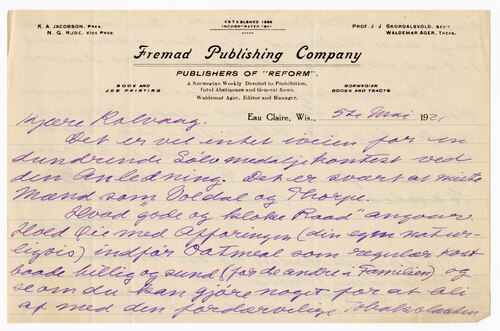 K. A. JACOBSON, PRES.
N. G. RUDE, VICE PRES.
ESTABLISHED 1886
INCORPORATED 1891
PROF. J. J. SKORDALSVOLD, SEC'Y
WALDEMAR AGER, TREAS.
Fremad Publishing Company
PUBLISHERS OF "REFORM".
A Norwegian Weekly Devoted to Prohibition,
Total Abstinence and General News.
Waldemar Ager, Editor and Manager.
BOOK AND
JOB PRINTING
NORWEGIAN
BOOKS AND TRACTS
Eau Claire, Wis., 5te Mai 1921
Kjære Rolvaag.
Det er vel intet iveien for en
dundrende Sølvmedaljekontest ved
den Anledning. Det er svært at miste
Mænd som Voldal og Thorpe.
Hvad "gode og kloke Raad" angaar.
Hold Die med Afføringen (din egen natur-
ligvis) indfør Oatmeal som regulær kost
baade billig og sund (for de andre i Familien) og
se om du kan gjøre noget for at bli
af med den fordærvelige